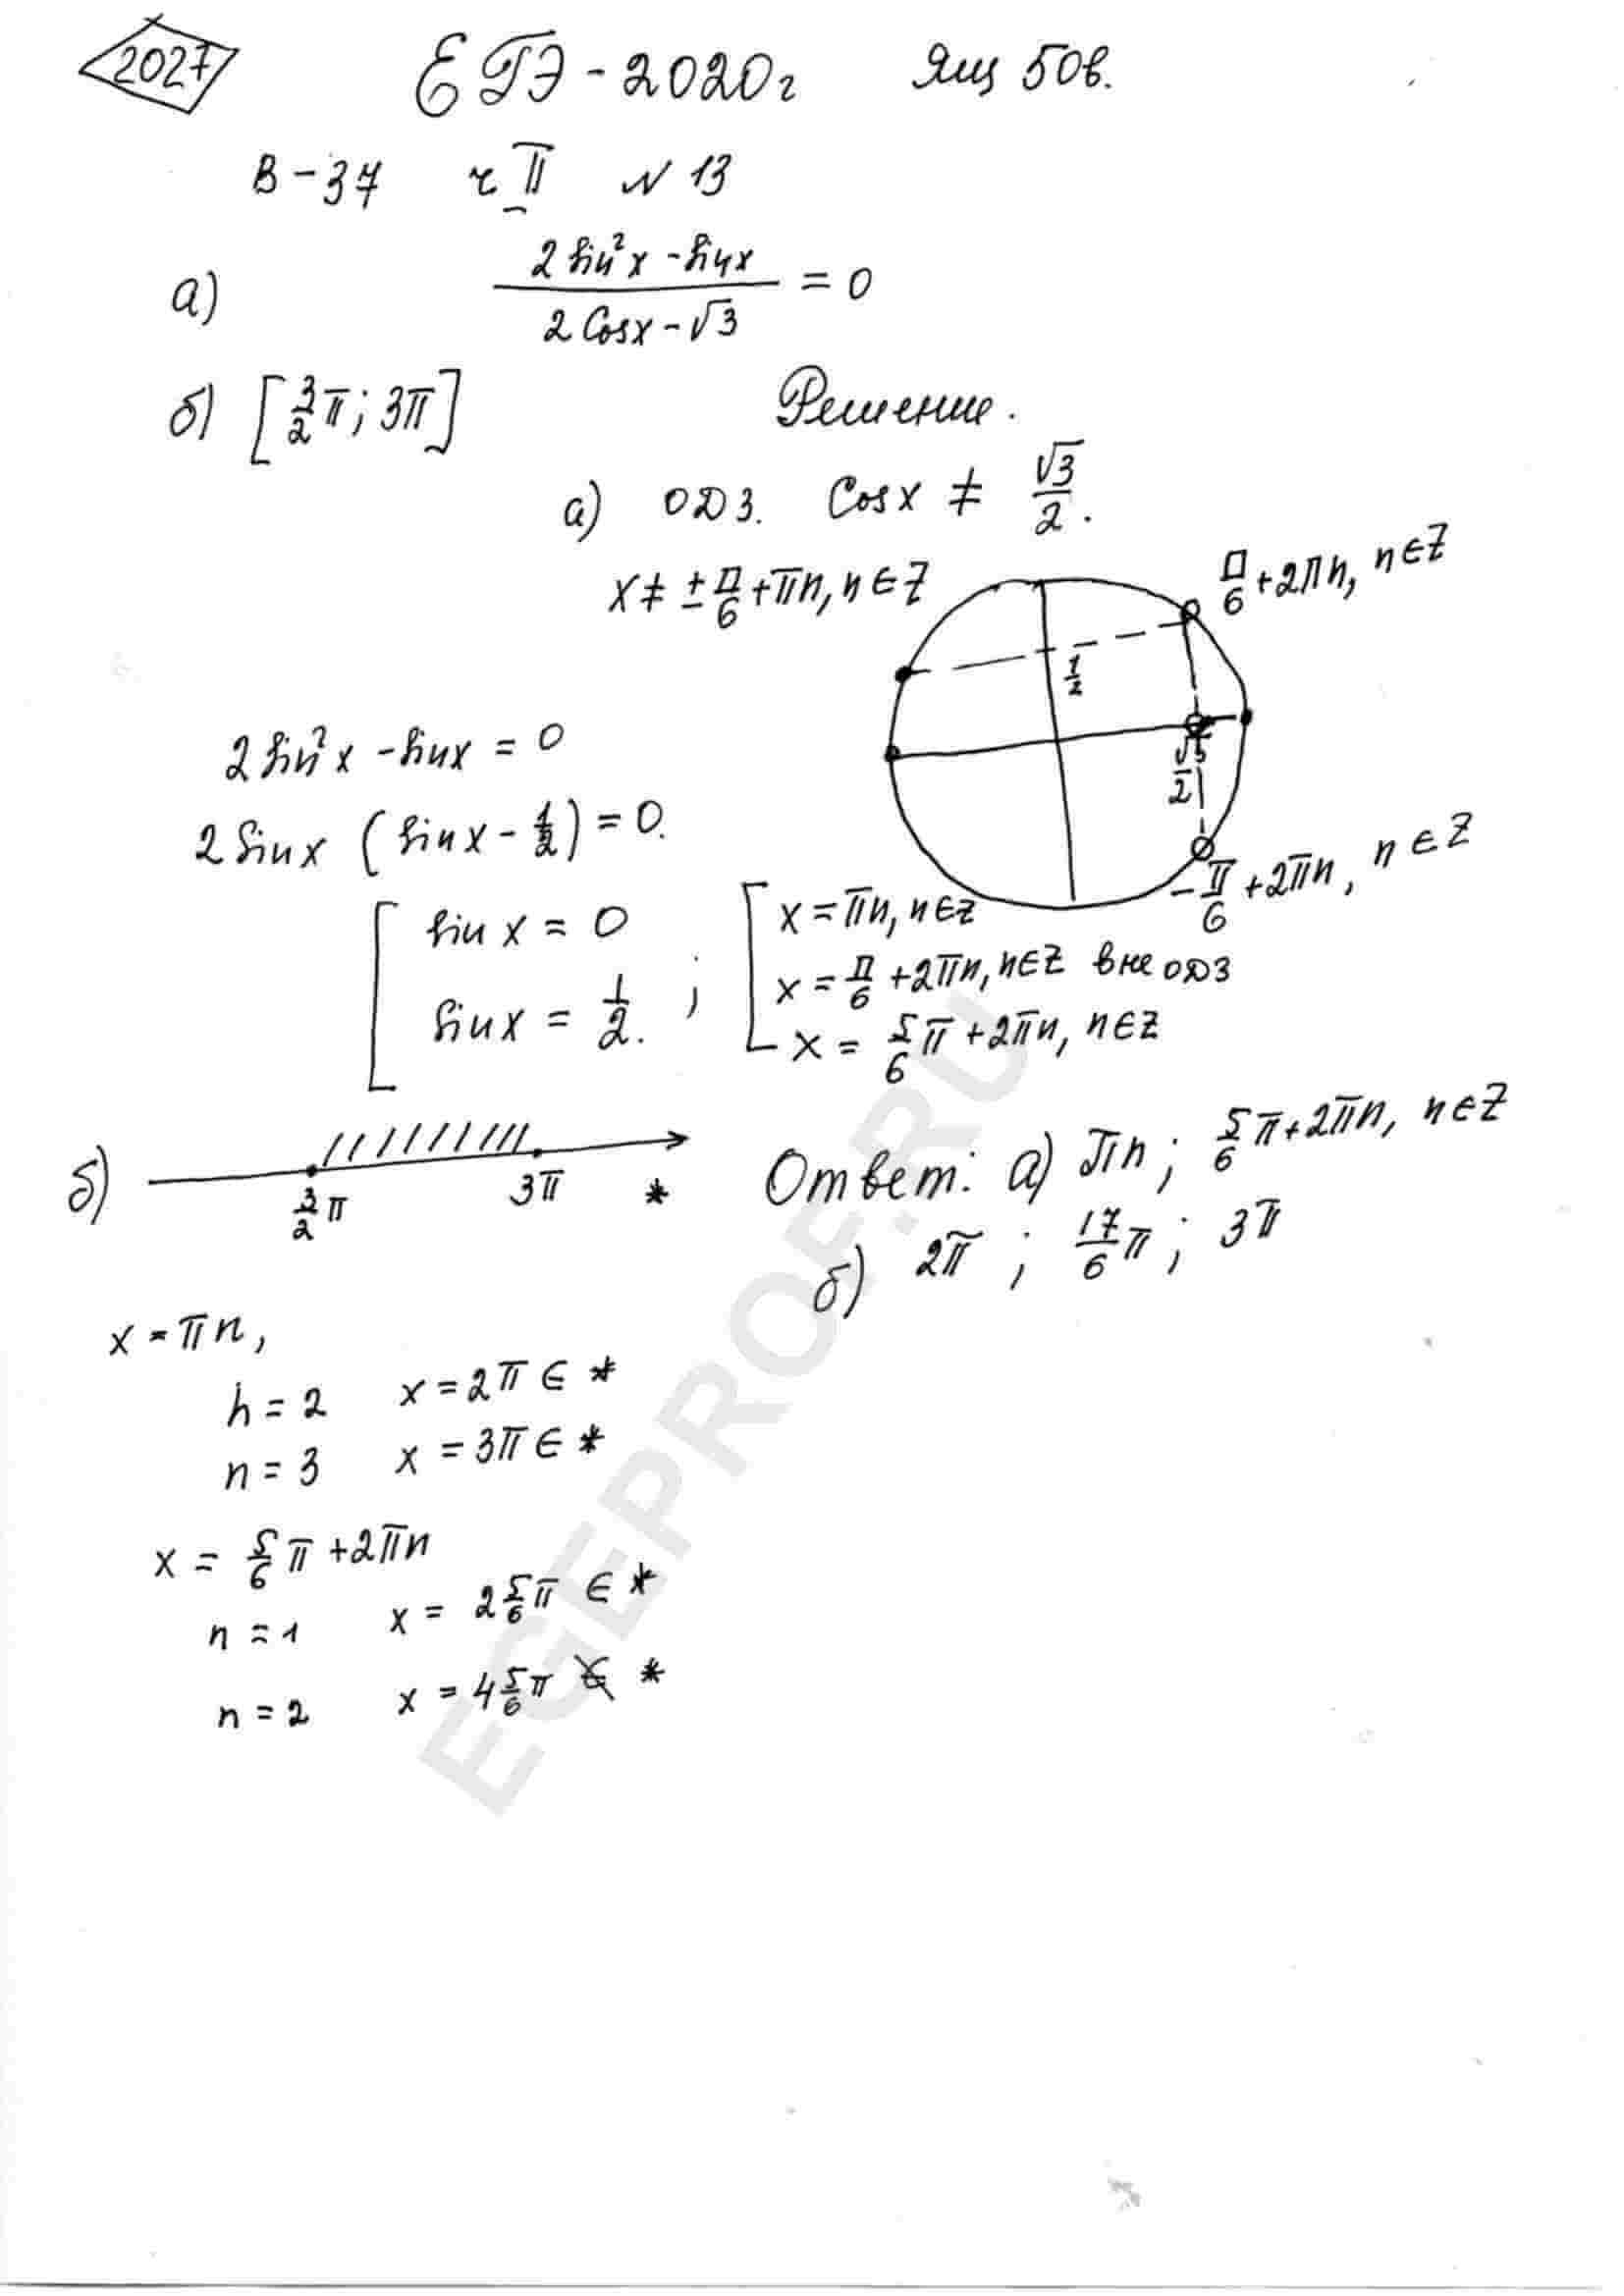 2027 ЕГЭ-2020г Ящ 50в.
В-37 ч II N 13
а) (2 sin²x - sin x)/(2 Cos x - √3) = 0
б) [3/2 π; 3π] Решение.
а) ОДЗ. Cos x ≠ √3/2.
x ≠ ± π/6 + πn, n ∈ Z
π/6 + 2πn, n ∈ Z
1/2
√3/2
-π/6 + 2πn, n ∈ Z
2 sin²x - sin x = 0
2 sin x (sin x - 1/2) = 0.
[ sin x = 0 ; [ x = πn, n ∈ Z
sin x = 1/2. x = π/6 + 2πn, n ∈ Z вне ОДЗ
x = 5/6 π + 2πn, n ∈ Z
б) 3/2 π 3π *
Ответ: а) πn; 5/6 π + 2πn, n ∈ Z
б) 2π; 17/6 π; 3π
x = πn,
n = 2 x = 2π ∈ *
n = 3 x = 3π ∈ *
x = 5/6 π + 2πn
n = 1 x = 2 5/6 π ∈ *
n = 2 x = 4 5/6 π ∉ *
EGEPROF.RU